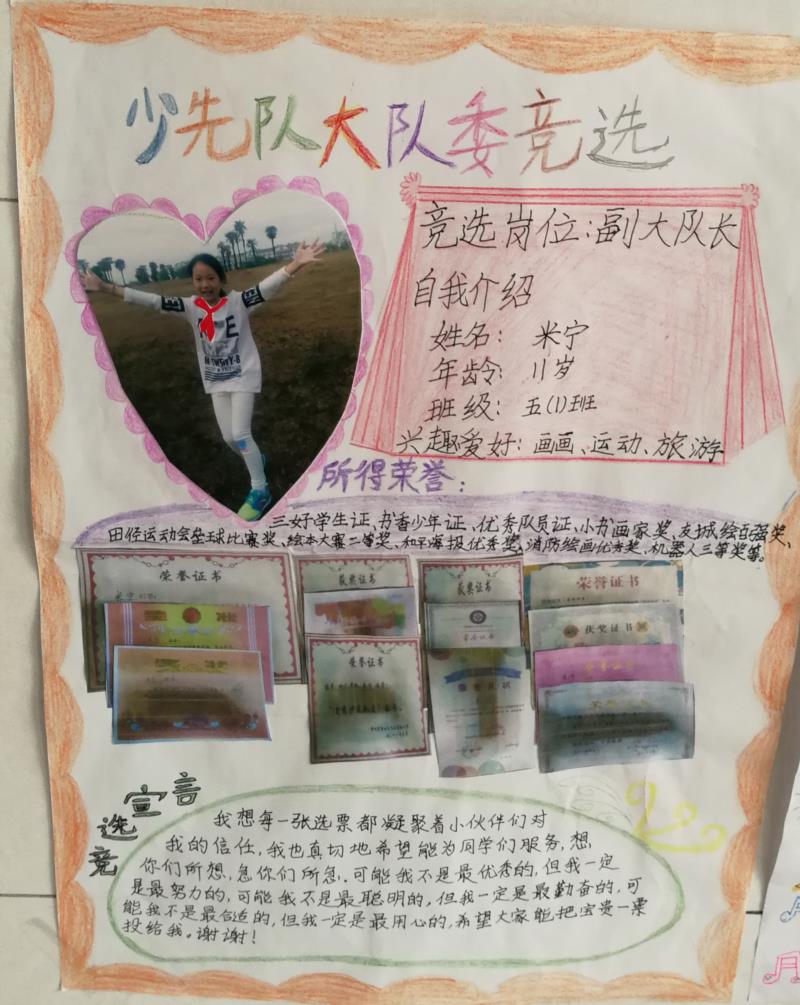 少先队大队委竞选
竞选岗位:副大队长
自我介绍
姓名: 米宁
年龄: 11岁
班级: 五(1)班
兴趣爱好: 画画、运动、旅游
所得荣誉:
三好学生证、书香少年证、优秀队员证、小书画家奖、友城绘百强奖、
田径运动会垒球比赛奖、绘本大赛二等奖、和平海报优秀奖、消防绘画优秀奖、机器人三等奖等。
荣誉证书
获奖证书
获奖证书
荣誉证书
荣誉证书
获奖证书
荣誉证书
竞选宣言
我想每一张选票都凝聚着小伙伴们对
我的信任,我也真切地希望能为同学们服务,想
你们所想,急你们所急.可能我不是最优秀的,但我一定
是最努力的,可能我不是最聪明的,但我一定是最勤奋的,可
能我不是最合适的,但我一定是最用心的,希望大家能把宝贵一票
投给我。谢谢!